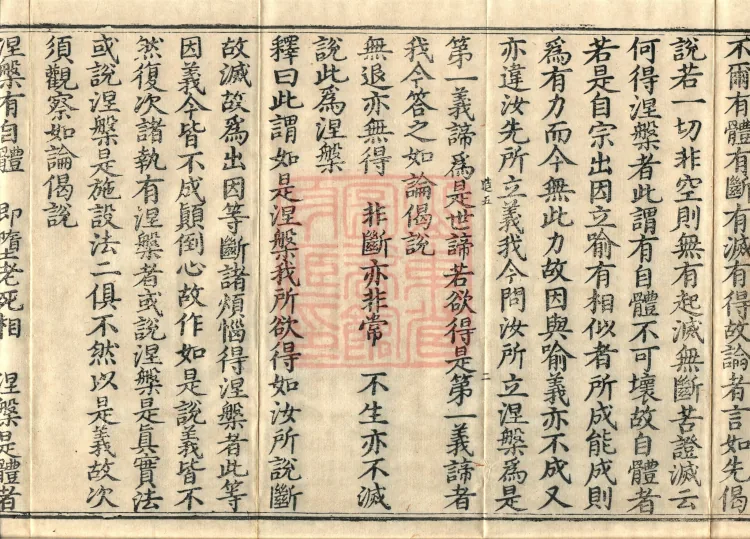 不爾有體有斷有滅有得故論者言如先偈
說若一切非空則無有起滅無斷苦證滅云
何得涅槃者此謂有自體不可壞故自體者
若是自宗出因立喻有相似者所成能成則
為有力而今無此力故因與喻義亦不成又
亦違汝先所立義我今問汝所立涅槃為是
第一義諦為是世諦若欲得是第一義諦者
我今答之如論偈說
無退亦無得 非斷亦非常 不生亦不滅
說此為涅槃
釋曰此謂如是涅槃我所欲得如汝所說斷
故滅故為出因等斷諸煩惱得涅槃者此等
因義今皆不成顛倒心故作如是說義皆不
然復次諸執有涅槃者或說涅槃是真實法
或說涅槃是施設法二俱不然以是義故次
須觀察如論偈說
涅槃有自體 即墮老死相 涅槃是體者